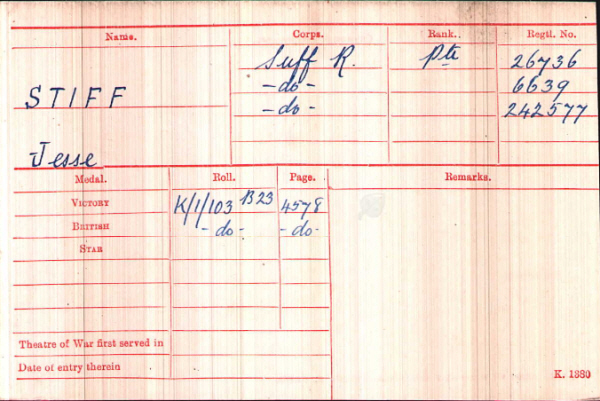 Name. Corps. Rank. Regtl. No.
Suff R. Pte 26736
-do- 6639
STIFF -do- 242577
Jesse
Medal. Roll. Page. Remarks.
VICTORY K/1/103 B23 4578
BRITISH -do- -do-
STAR
Theatre of War first served in
Date of entry therein
K. 1380